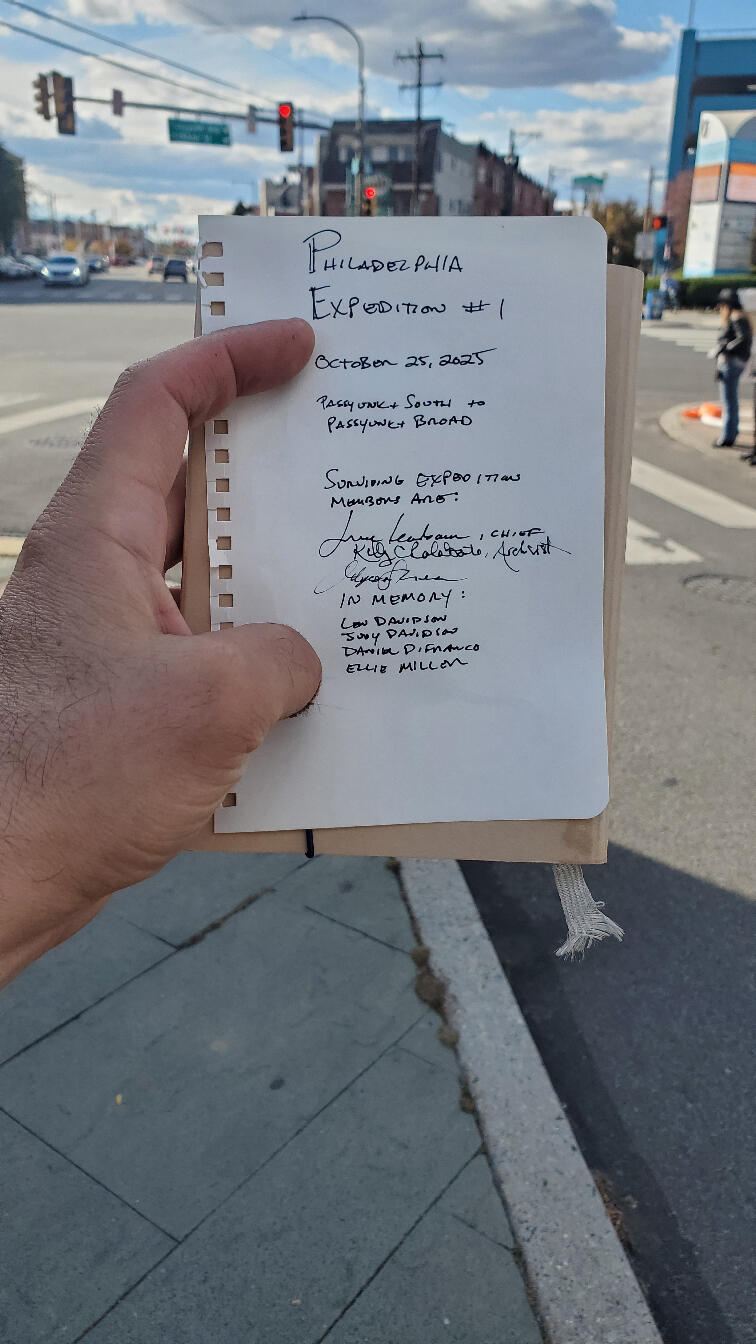 PHILADELPHIA
EXPEDITION #1
OCTOBER 25, 2025
PASSYUNK + SOUTH to
PASSYUNK + BROAD
SURVIVING EXPEDITION
MEMBERS ARE:
, CHIEF
Kelly , Archivist
IN MEMORY:
LEN DAVIDSON
JUDY DAVIDSON
DANIEL DIFRANCO
ELLIE MILLER